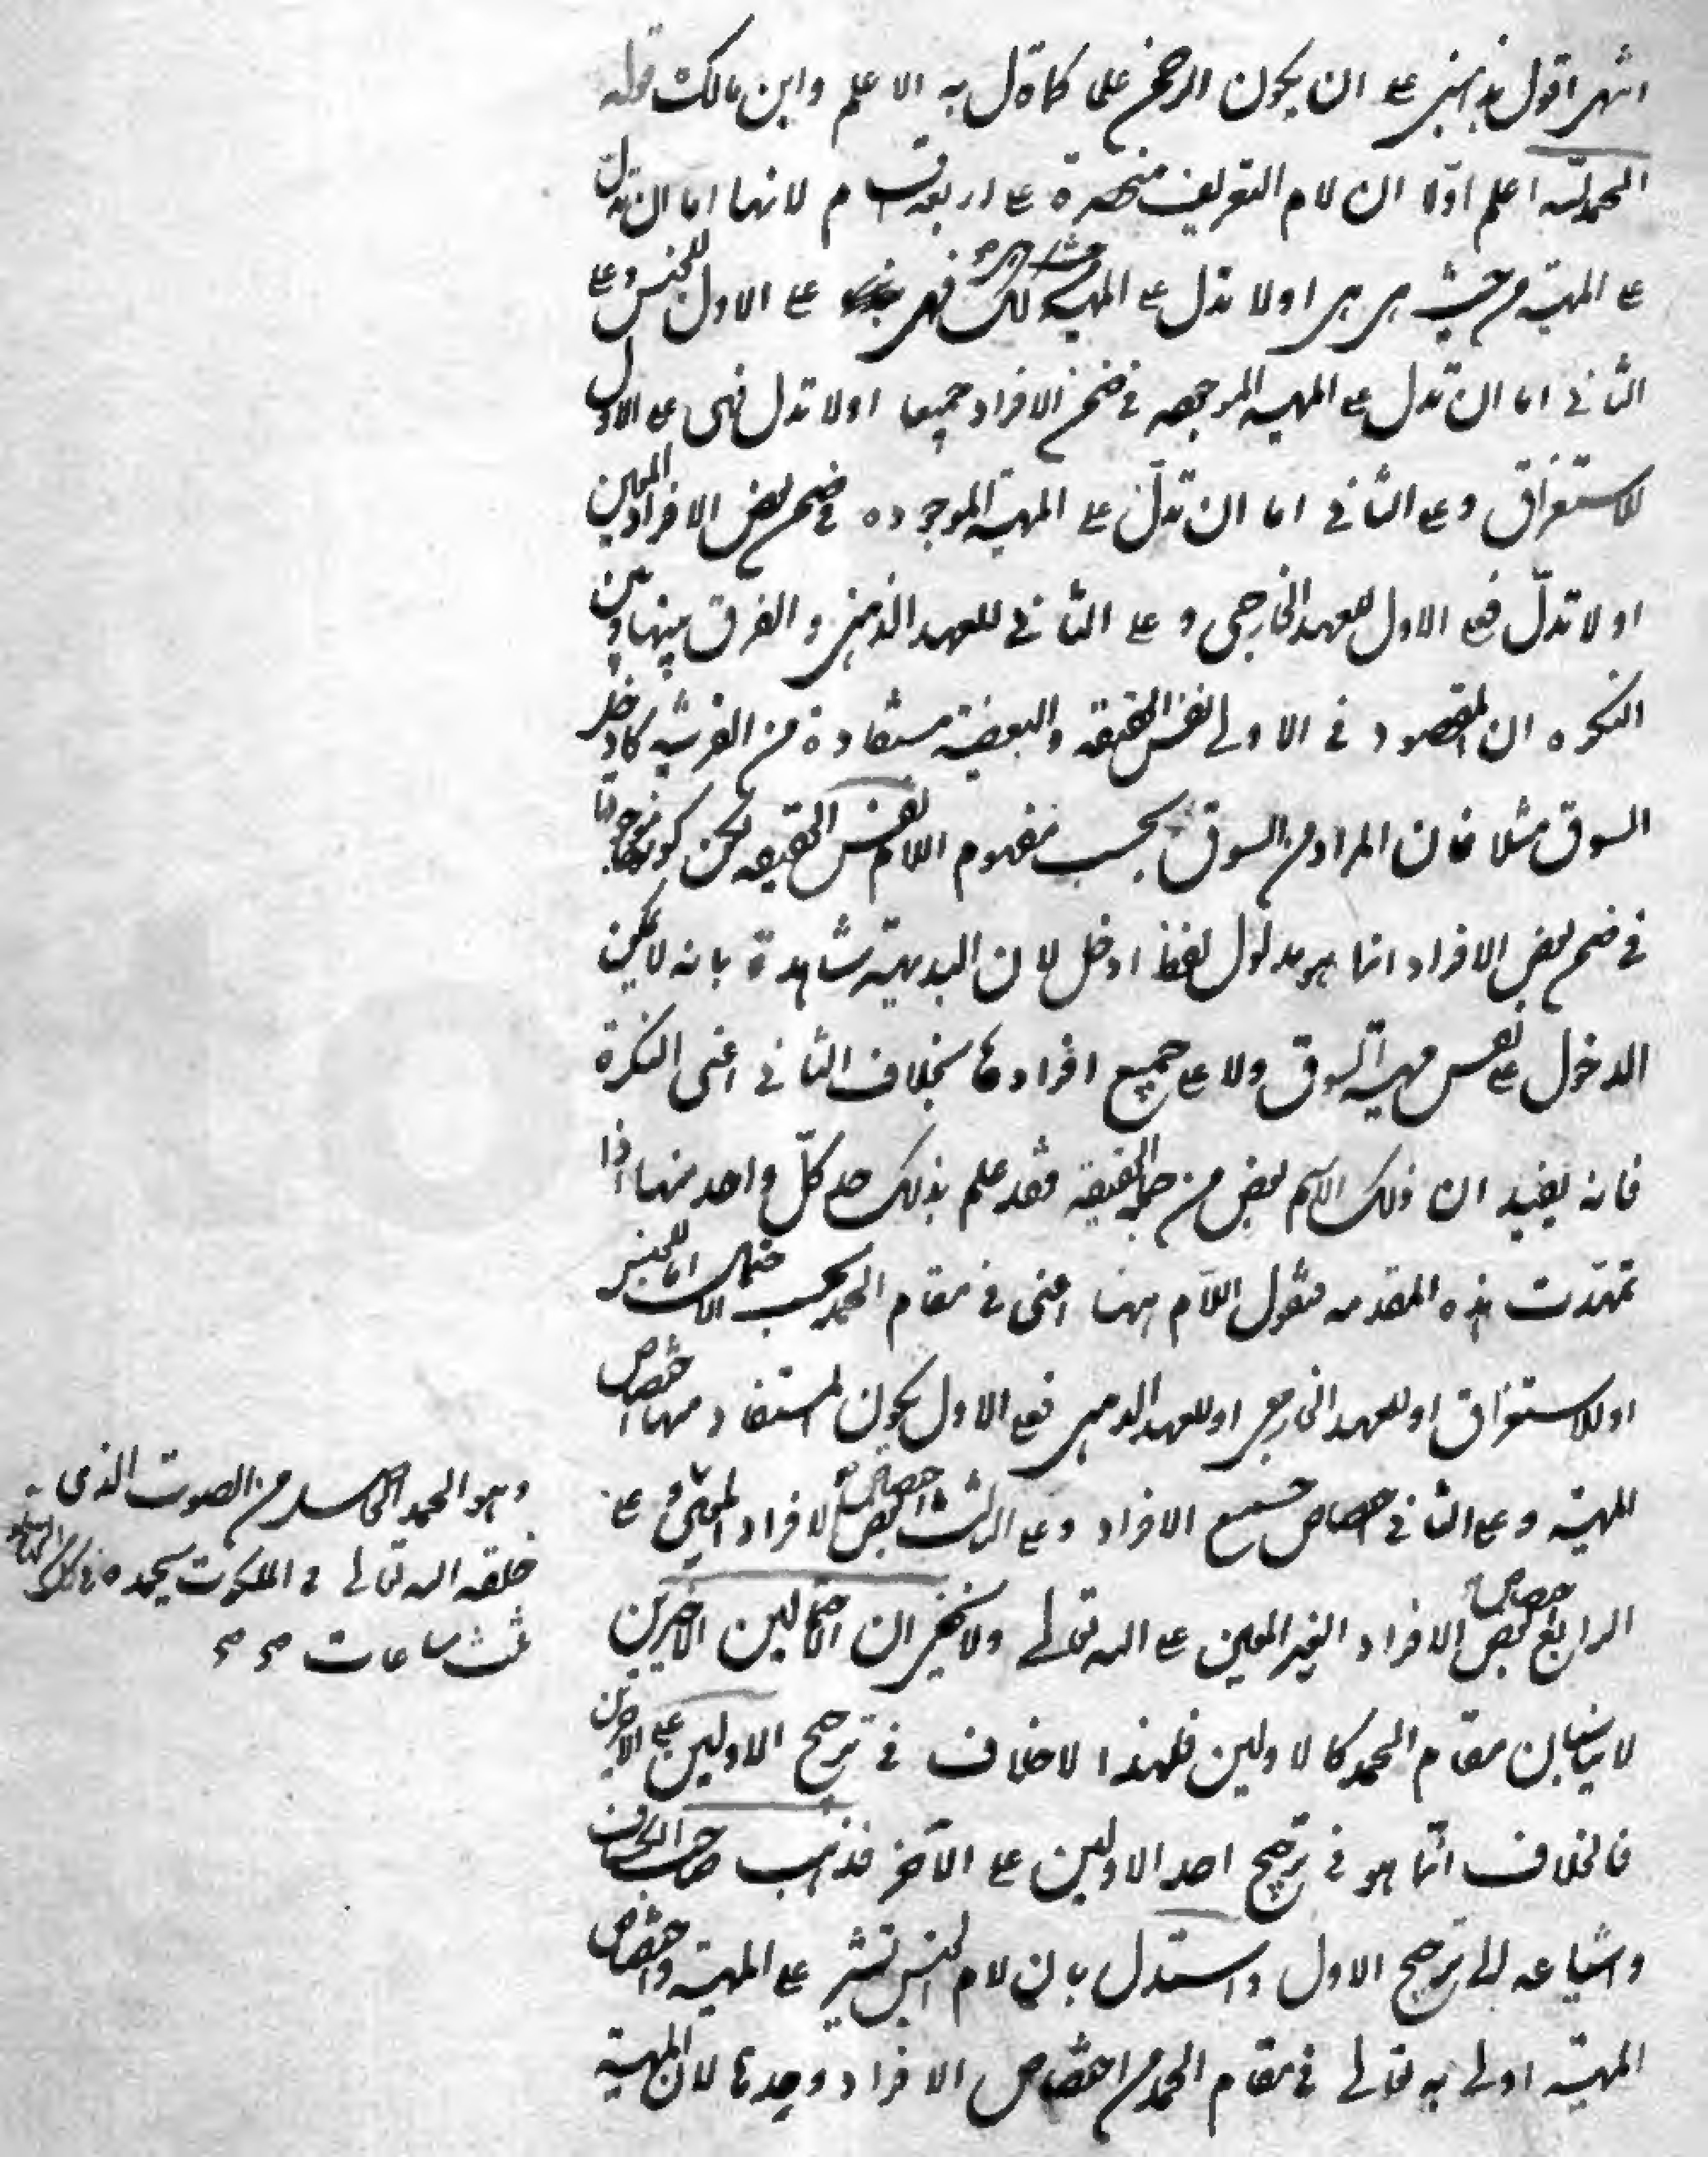 انتهى اقول هذا مبنى على ان يكون الرحمن علما كما قال به الاعلم وابن مالك قوله
الحمد لله اعلم اولا ان لام التعريف منحصرة على اربعة اقسام لانها اما ان تدل
على المهية من حيث هى هى اولا تدل على المهية كذلك فهى على الاول للجنس وعلى
الثانى اما ان تدل على المهية الموجوده فى ضمن الافراد جميعا اولا تدل فهى على الاول
للاستغراق وعلى الثانى اما ان تدلّ على المهية الموجوده فى ضمن بعض الافراد المعين
اولا تدلّ فعلى الاول للعهد الخارجى وعلى الثانى للعهد الذهنى والفرق بينها وبين
النكره ان المقصود فى الاولى نفس الحقيقه والبعضية مستفادة من القرينه كادخل
السوق مثلا فان المراد من السوق بحسب مفهوم اللام نفس الحقيقه لكن كونه موجودا
فى ضمن بعض الافراد انما هو مدلول لفظ ادخل لان البديهية شاهدة بانه لا يمكن
الدخول على نفس مهية السوق ولا على جميع افرادها بخلاف الثانى اعنى النكرة
فانه يفيد ان ذلك الاسم بعض من الحقيقه فقد علم بذلك حد كلّ واحد منها اذا
تمهدت هذه المقدمه فنقول اللام ههنا اعنى فى مقام الحمد بحسب الاحتمال اما للجنس
او للاستغراق او للعهد الخارجى او للعهد الذهنى فعلى الاول يكون المستفاد منها اختصاص
المهية وعلى الثانى اختصاص جميع الافراد وعلى الثالث اختصاص بعض الافراد المعين وعلى
الرابع اختصاص بعض الافراد الغير المعين على الله تعالى ولا يخفى ان الاحتمالين الاخيرين
لا يناسبان مقام الحمد كالاولين فلهذا لا خلاف فى ترجيح الاولين على الاخيرين
فالخلاف انّما هو فى ترجيح احد الاولين على الآخر فذهب صاحب الكشاف
واشياعه الى ترجيح الاول واستدل بان لام الجنس تشير على المهية واختصاص
المهية اولى به تعالى فى مقام الحمد من اختصاص الافراد وحدها لان المهية
وهو الحمد الحاصل من الصوت الذى
خلقه الله تعالى فى الملكوت يحمده فى كل
ثلث ساعات